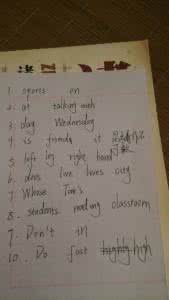 1. sports on
2. at talking with
3. play Wednesday
4. is friends it
5. left by right hand
6. does live lives city
7. Whose Tom's
8. students reading classroom
9. Don't in
10. Do fast high